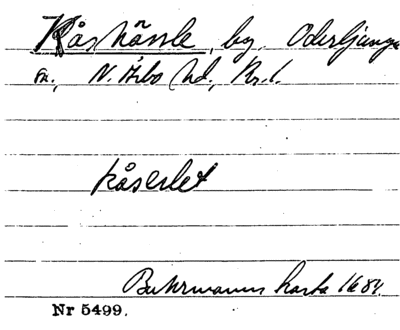 Kåshässle, by, Oderljunga
sn., N. Åsbo hd, Kr. l.
kåserlet
Buhrmanns karta 1684.
Nr 5499.